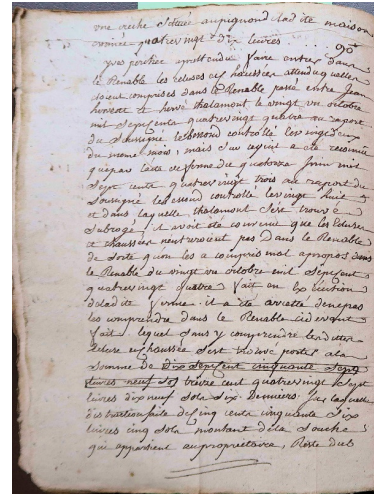 une creche située au pignond de la de maison
donnée quatrevingt dix livres 90
yves perchec aprettendu faire entrer dans
le Renable les cluses et chaussées attendu quelles
soient comprises dans le Renable passé entre Jean
et hervé thalamont le vingt un octobre
mil Sept cents quatre vingt quatre au raport
du Soussigné controllé les vingt deux
du meme mois, mais Sur ce qui a été reconnu
que par l'acte de ferme du quatorze Juin mil
Sept cents quatre vingt trois au raport du
Soussigné controllé les vingt huit
et dans laquelle thalamont S'est trouvé
Subrogé il avoit été convenue que les Ecluses
et chaussées n'entreroient pas dans le Renable
de Sorte qu'on les a compris mal apropos dans
le Renable du vingt un octobre mil Sept cent
quatre vingt quatre fait en Execution
de la dite ferme; il a été arretté de ne pas
les comprendre dans le Renable cidevant
fait lequel Sans y comprendre les dittes
ecluse et chaussée Sest trouvé porter a la
Somme de Dix Sept cent cinquante Sept
livres neuf Sols treize cent quatre vingt Sept
livres dix neuf Sols Six Denniers Sur laquelle
distraction faite de Cinq cents cinquante Six
livres cinq Sols montant de la Souche
qui appartient au propriétaire, Reste dub